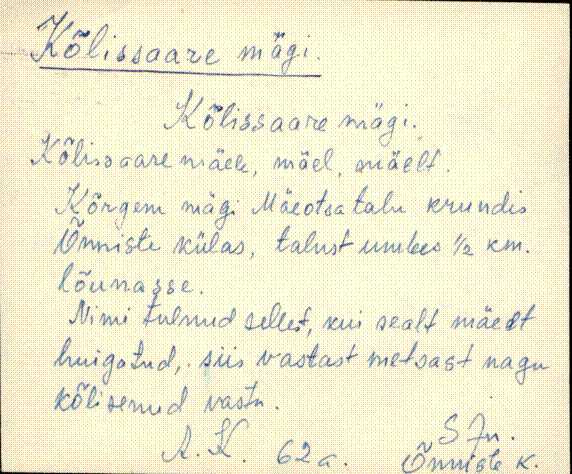 Kõlissaare mägi.
Kõlissaare mägi.
Kõlissaare mäele, mäel, mäelt.
Kõrgem mägi Mäeotsa talu krundis
Õnniste külas, talust umbes ½ km.
lõunasse.
Nimi tulnud sellest, kui sealt mäelt
huigatud, siis vastast metsast nagu
kõlisenud vastu.
A. K. 62 a.
Õnniste k.